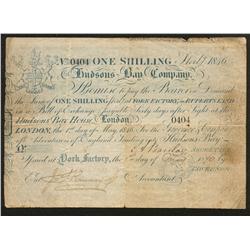 No 0404 ONE SHILLING Sterlg 1846
Hudsons Bay Company.
Promise to pay the Bearer on Demand
the Sum of ONE SHILLING at YORK FACTORY in RUPERTS LAND
in a Bill of Exchange payable Sixty days after Sight at the
Hudsons Bay House, London 0404
LONDON, the 1st day of May 1846. For the Governor & Company
of Adventurers of England Trading into Hudsons Bay
SECRETARY
Issued at York Factory, the day of
GOVERNOR
Entd Accountant